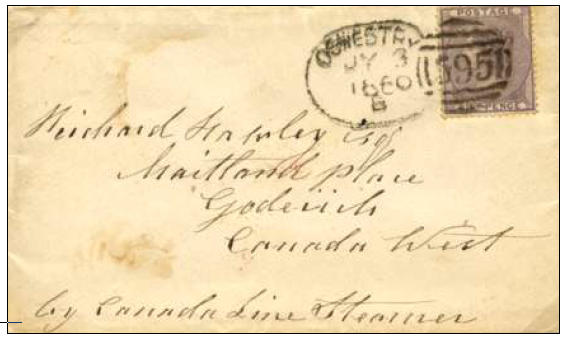 POSTAGE
OSWESTRY
JY 3
1860
B
595
SIX-PENCE
Richard Hawley Esq
Maitland place
Goderich
Canada West
by Canada Line Steamer